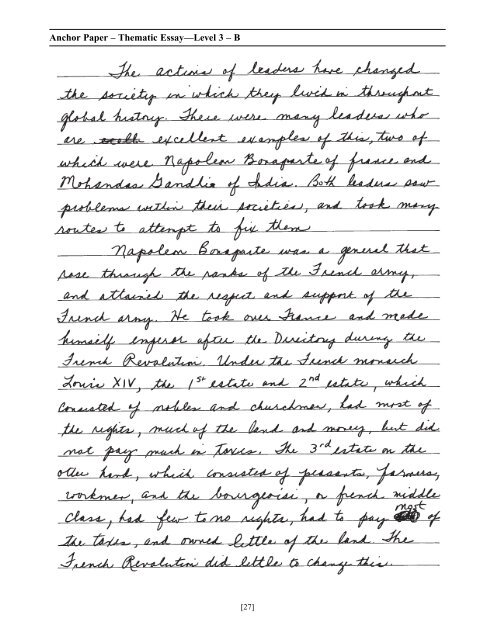 Anchor Paper – Thematic Essay—Level 3 – B
The actions of leaders have changed
the society in which they livid in throughout
global history. There were many leaders who
are excellent examples of this, two of
which were Napoleon Bonaparte of france and
Mohandas Gandhi of India. Both leaders saw
problems within their societies, and took many
routes to attempt to fix them
Napoleon Bonaparte was a general that
rose through the ranks of the French army,
and attained the respect and support of the
French army. He took over France and made
himself emperor after the Directory during the
French Revolution. Under the French monarch
Louis XIV, the 1st estate and 2nd estate, which
consisted of nobles and churchmen, had most of
the rights, much of the land and money, but did
not pay much in taxes. The 3rd estate on the
other hand, which consisted of peasants, farmers,
workmen, and the bourgeoisie, or french middle
class, had few to no rights, had to pay most of
the taxes, and owned little of the land. The
French Revolution did little to change this.
[27]